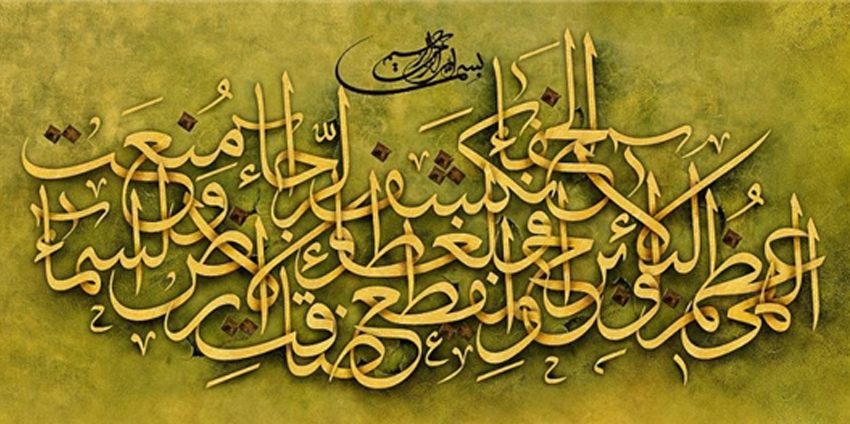 بسم الله الرحمن الرحيم
الهي عظم البلاء و برح الخفاء و انكشف الغطاء و انقطع الرجاء و ضاقت الارض و منعت السماء